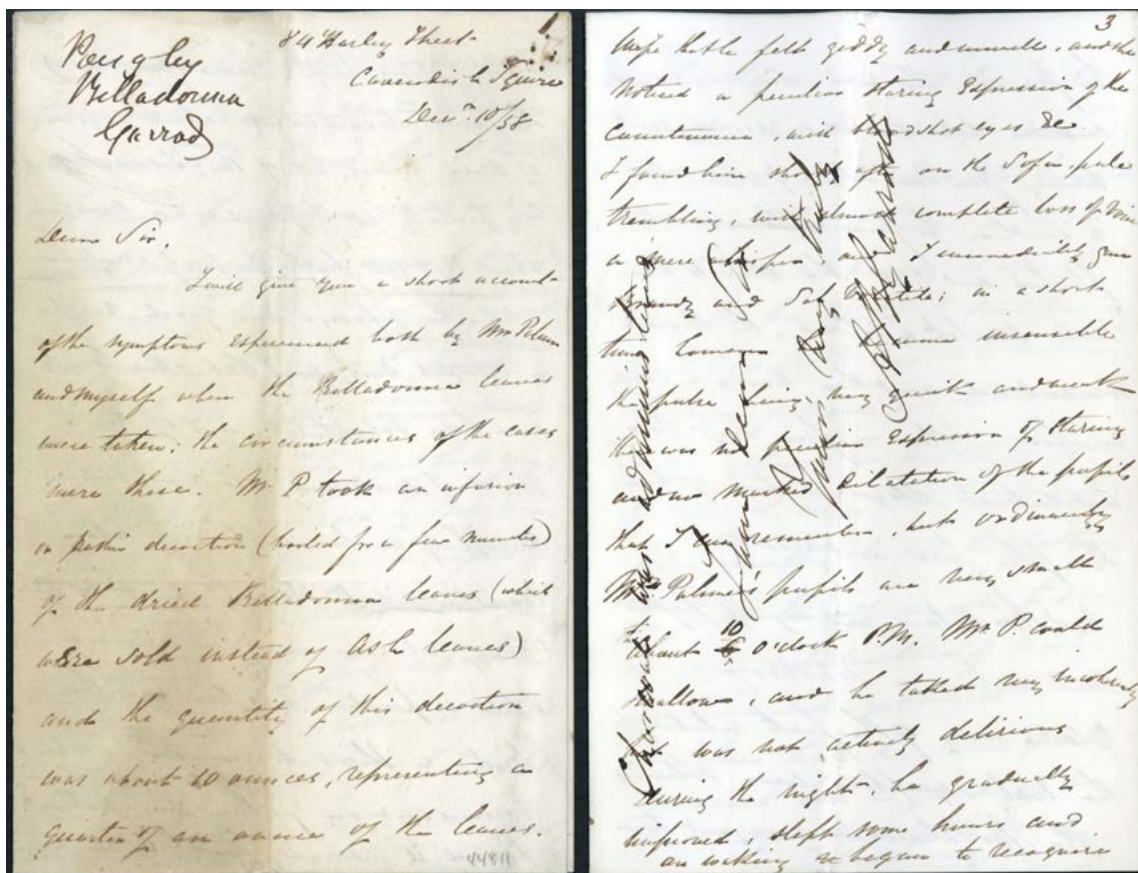 1
Pengley
Belladonna
Garrod
84 Harley Street
Cavendish Square
Decr. 10/58
Dear Sir,
I will give you a short account
of the symptoms experienced both by Mr Palmer
and myself when the Belladonna leaves
were taken; the circumstances of the cases
were these. Mr P. took an infusion
or decoction (boiled for a few minutes)
of the dried Belladonna leaves (which
were sold instead of Ash leaves)
and the quantity of this decoction
was about 10 ounces, representing a
quarter of an ounce of the leaves.
44811
3
wife that he felt giddy and unwell, and she
noticed a peculiar staring expression of the
countenance, with bloodshot eyes &c
I found him shortly after on the Sofa, pale
trembling, with almost complete loss of voice
a mere whisper, I immediately gave
Brandy and Sal Volatile; in a short
time however became insensible
the pulse being very quick and weak
there was no peculiar expression of staring
and no marked dilatation of the pupils
that I can remember, but ordinarily
Mr Palmer's pupils are very small
about 10 o'clock P.M. Mr P. could
swallow, and he talked very incoherently
but was not actively delirious
during the night, he gradually
improved, slept some hours and
on waking he began to recognise
was administered
dear Sir
Yours very truly
A B Garrod